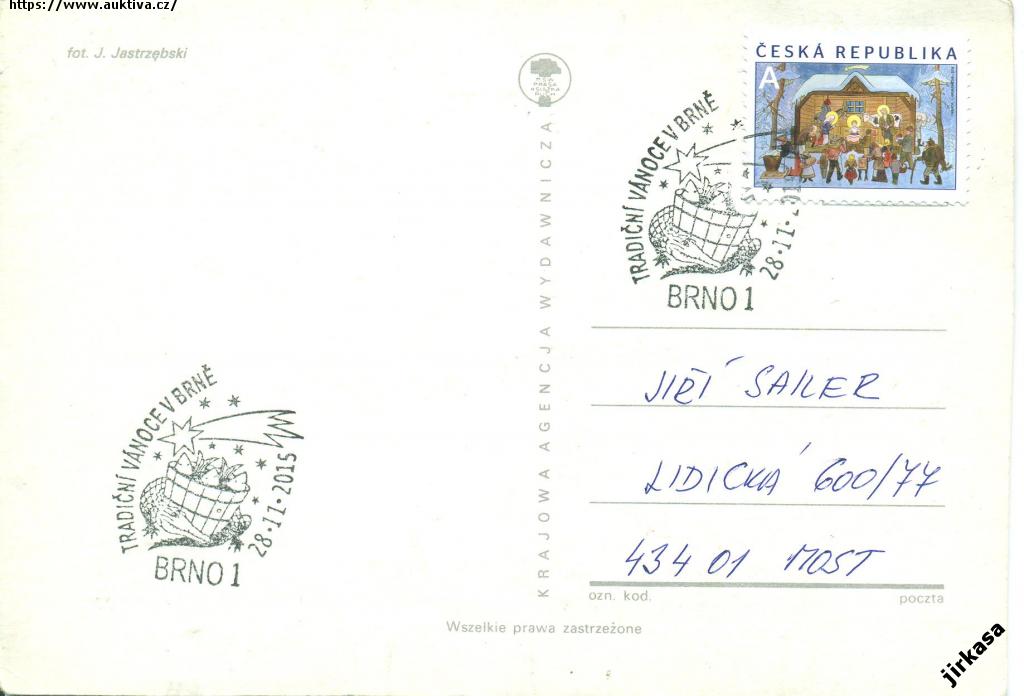 https://www.auktiva.cz/
fot. J. Jastrzębski
KRAJOWA AGENCJA WYDAWNICZA
RSW
PRASA
KSIĄŻKA
RUCH
ČESKÁ REPUBLIKA
A
TRADIČNÍ VÁNOCE V BRNĚ
28·11·201
BRNO 1
JIŘÍ SAILER
LIDICKÁ 600/77
434 01 MOST
ozn. kod.
poczta
TRADIČNÍ VÁNOCE V BRNĚ
28·11·2015
BRNO 1
Wszelkie prawa zastrzeżone
jirkasa